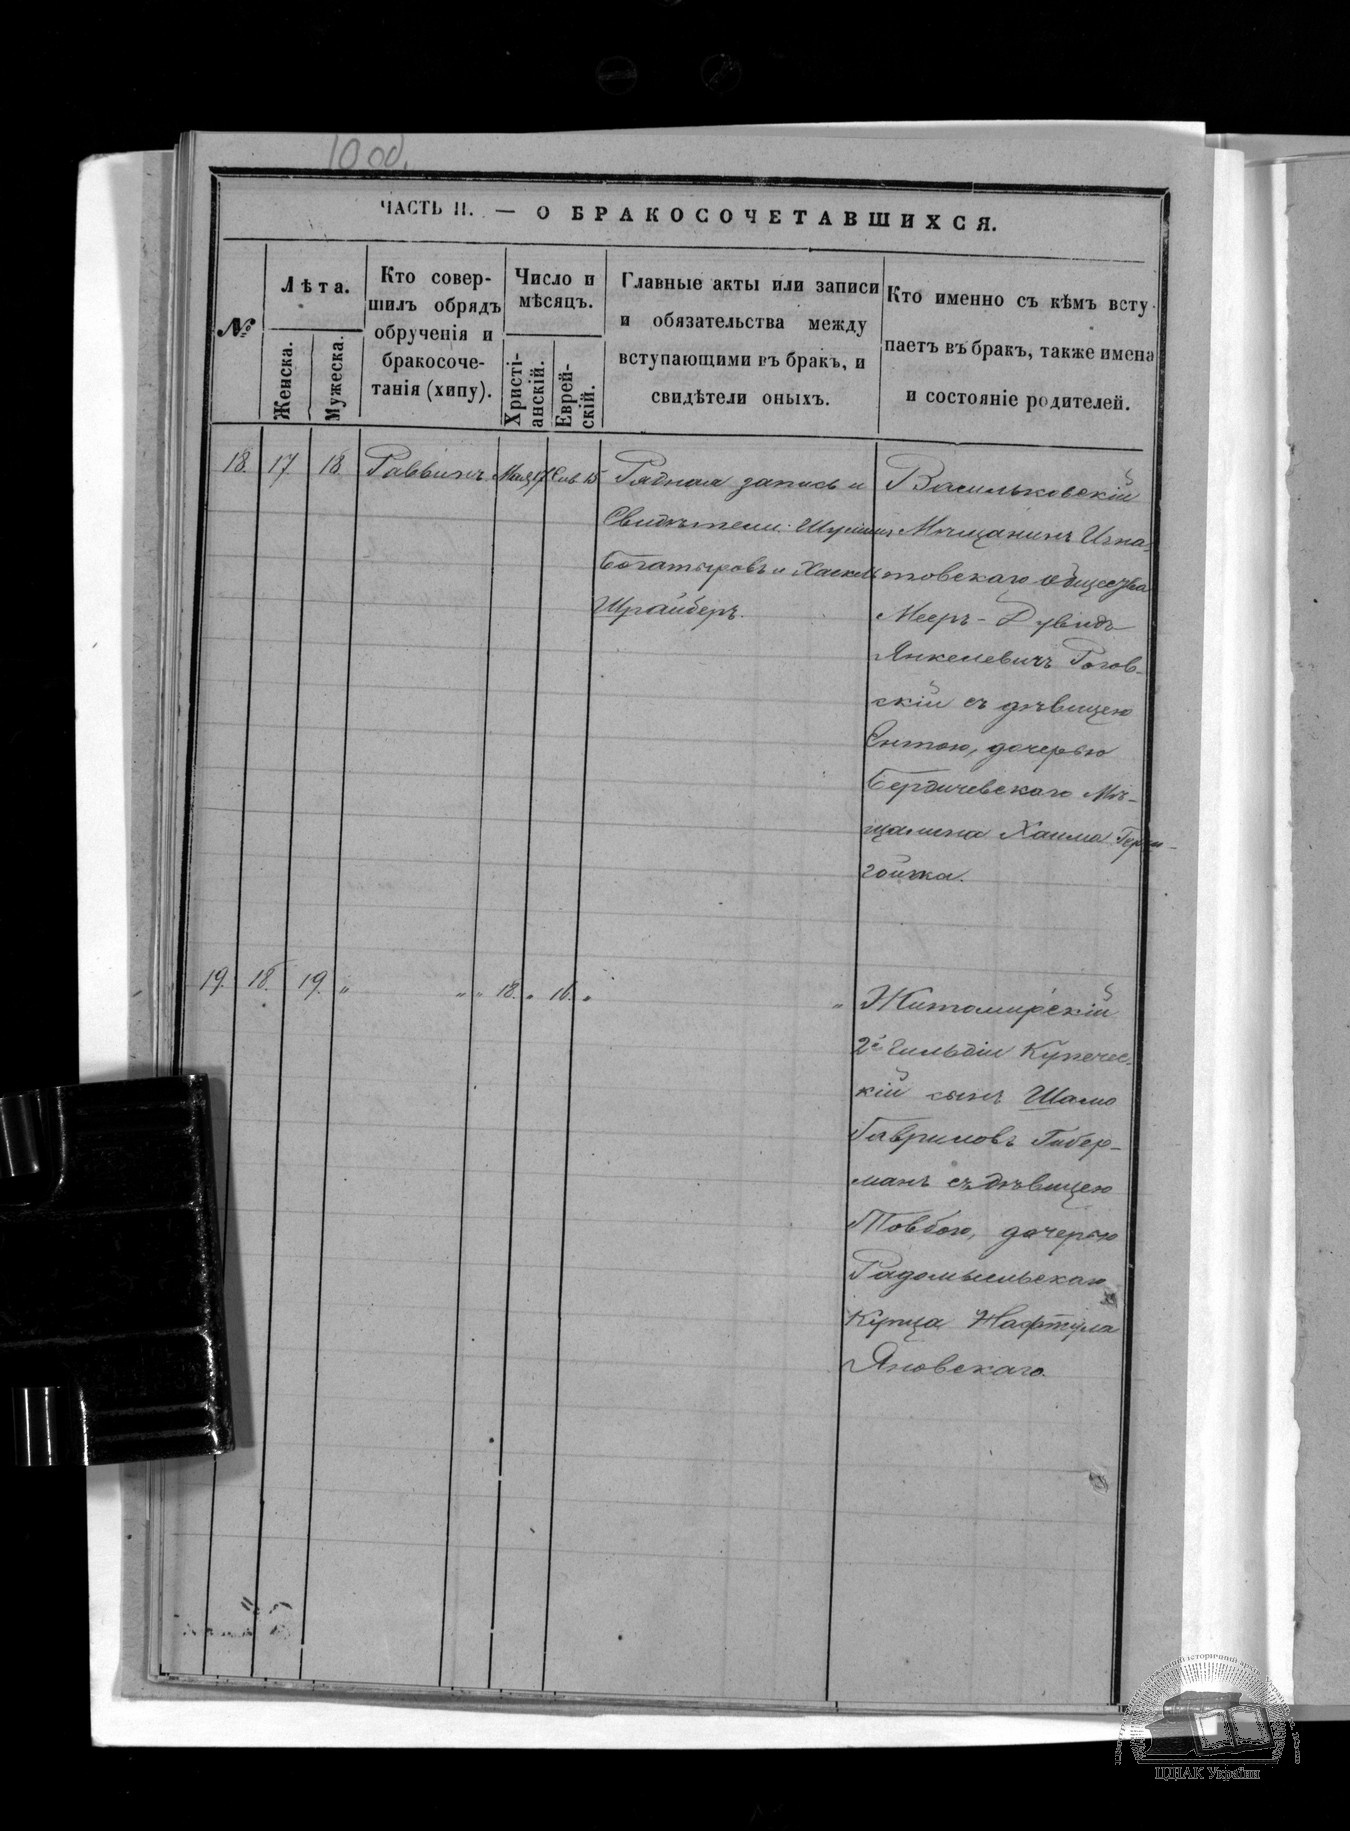 10 об.
ЧАСТЬ II. — О БРАКОСОЧЕТАВШИХСЯ.
№
Лѣта.
Женска.
Мужеска.
Кто совер-
шилъ обрядъ
обрученія и
бракосоче-
танія (хипу).
Число и
мѣсяцъ.
Христі-
анскій.
Еврей-
скій.
Главные акты или записи
и обязательства между
вступающими въ бракъ, и
свидѣтели оныхъ.
Кто именно съ кѣмъ всту-
паетъ въ бракъ, также имена
и состояніе родителей.
18. 17 18 Раввинъ Мая 17 Сив 15 Рядная запись и
Свидѣтели:
Богатыровъ и Хаскель
Шрайберъ.
Васильковскій
Мѣщанинъ Игна-
товскаго Общества
Мееръ-Дувидъ
Янкелевичъ Рогов-
скій съ дѣвицею
Ентою, дочерью
Бердичевскаго Мѣ-
щанина Хаима
19. 18 19. " " " 18. " 16. " "
Житомирскій
2й Гильдіи Купечес-
кій сынъ Шамо
Гавриловъ Гибер-
манъ съ дѣвицею
Товбою, дочерью
Радомысльскаго
Купца Нафтула
Яновскаго.
ЦДІАК України